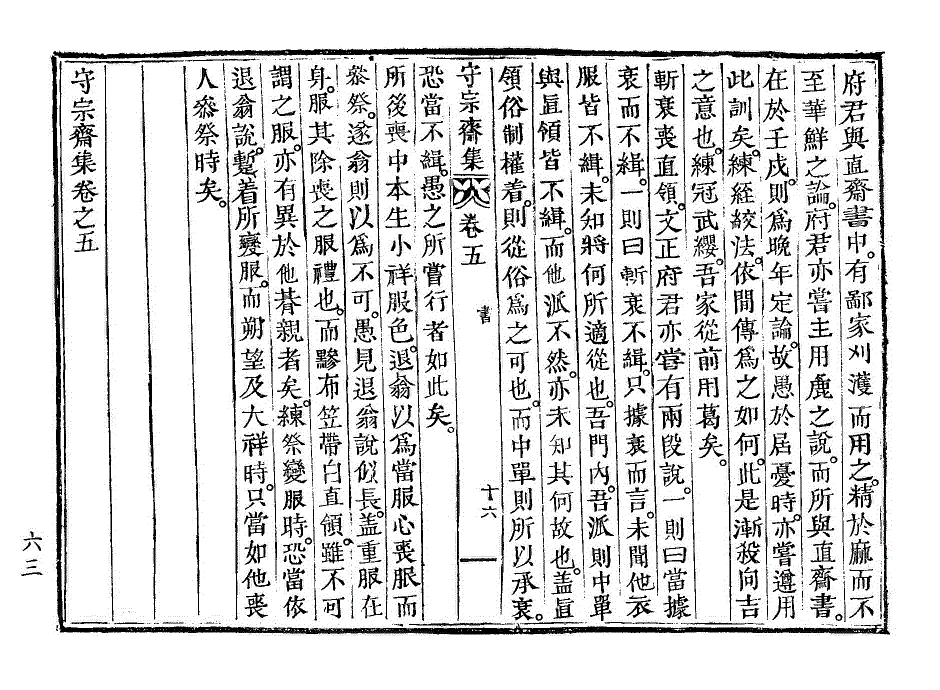 府君與直齋書中。有鄙家刈濩而用之。精於麻而不
至華鮮之論。府君亦嘗主用麁之說。而所與直齋書。
在於壬戌。則爲晩年定論。故愚於居憂時。亦嘗遵用
此訓矣。練絰絞法。依間傳爲之如何。此是漸殺向吉
之意也。練冠武纓。吾家從前用葛矣。
斬衰喪直領。文正府君亦嘗有兩段說。一則曰當據
衰而不緝。一則曰斬衰不緝。只據衰而言。未聞他衣
服皆不緝。未知將何所適從也。吾門內。吾派則中單
與直領皆不緝。而他派不然。亦未知其何故也。盖直
領俗制權着。則從俗爲之可也。而中單則所以承衰。
恐當不緝。愚之所嘗行者如此矣。
所後喪中本生小祥服色。退翁以爲當服心喪服而
叅祭。遂翁則以爲不可。愚見退翁說似長。盖重服在
身。服其除喪之服禮也。而黲布笠帶白直領。雖不可
謂之服。亦有異於他朞親者矣。練祭變服時。恐當依
退翁說。蹔着所變服。而朔望及大祥時。只當如他喪
人叅祭時矣。
守宗齋集卷之五
守宗齋集 卷五 書 十六
六三